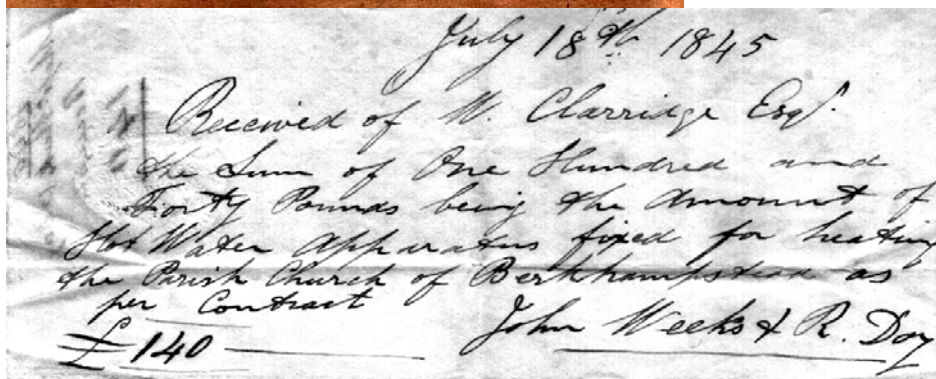 July 18th 1845
Received of W. Clarridge Esqr.
the Sum of One Hundred and
Forty Pounds being the Amount of
Hot Water Apparatus fixed for heating
the Parish Church of Berkhampstead as
per Contract
£140 John Weeks & R. Day